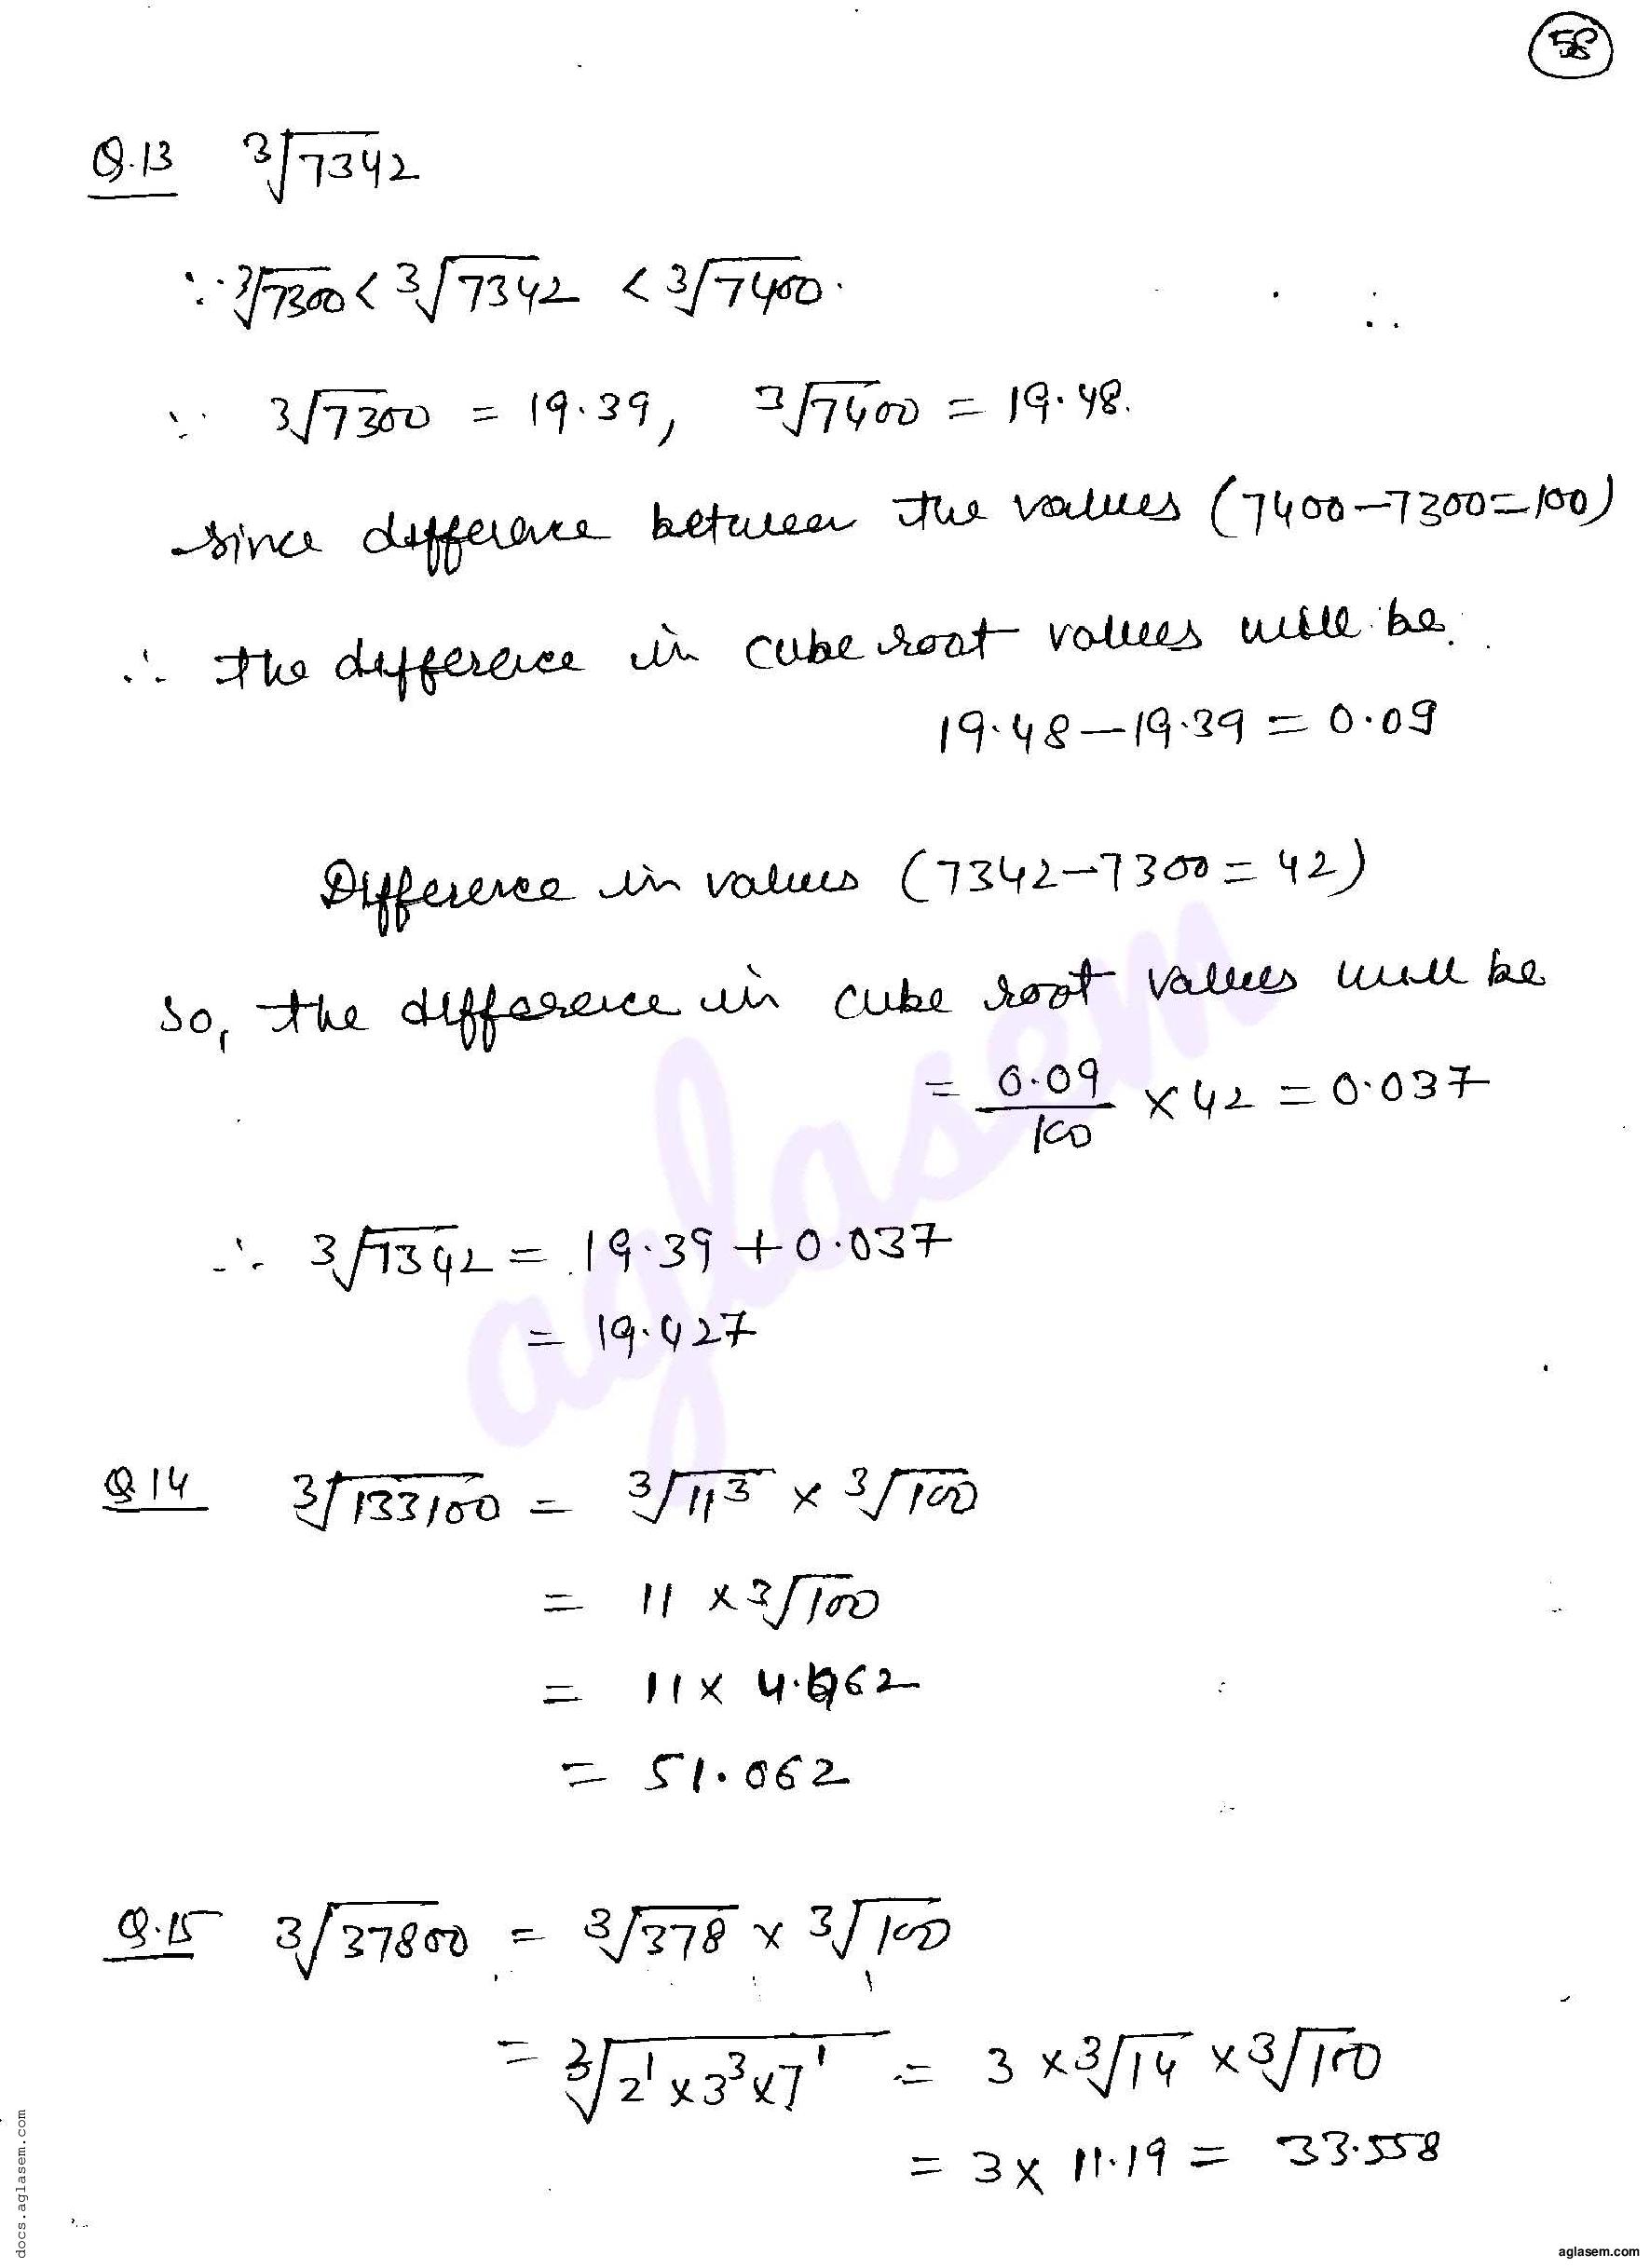 58
Q.13 ∛7342
∵ ∛7300 < ∛7342 < ∛7400.
∵ ∛7300 = 19.39, ∛7400 = 19.48.
since difference between the values (7400-7300=100)
∴ the difference in cube root values will be.
19.48-19.39 = 0.09
Difference in values (7342-7300 = 42)
So, the difference in cube root values will be
= 0.09/100 × 42 = 0.037
∴ ∛7342 = 19.39 + 0.037
= 19.427
aglasem
Q 14 ∛133100 = ∛11³ × ∛100
= 11 × ∛100
= 11 × 4.662
= 51.062
Q.15 ∛37800 = ∛378 × ∛100
= ∛2¹ × 3³ × 7¹ = 3 × ∛14 × ∛100
= 3 × 11.19 = 33.558
docs.aglasem.com
aglasem.com